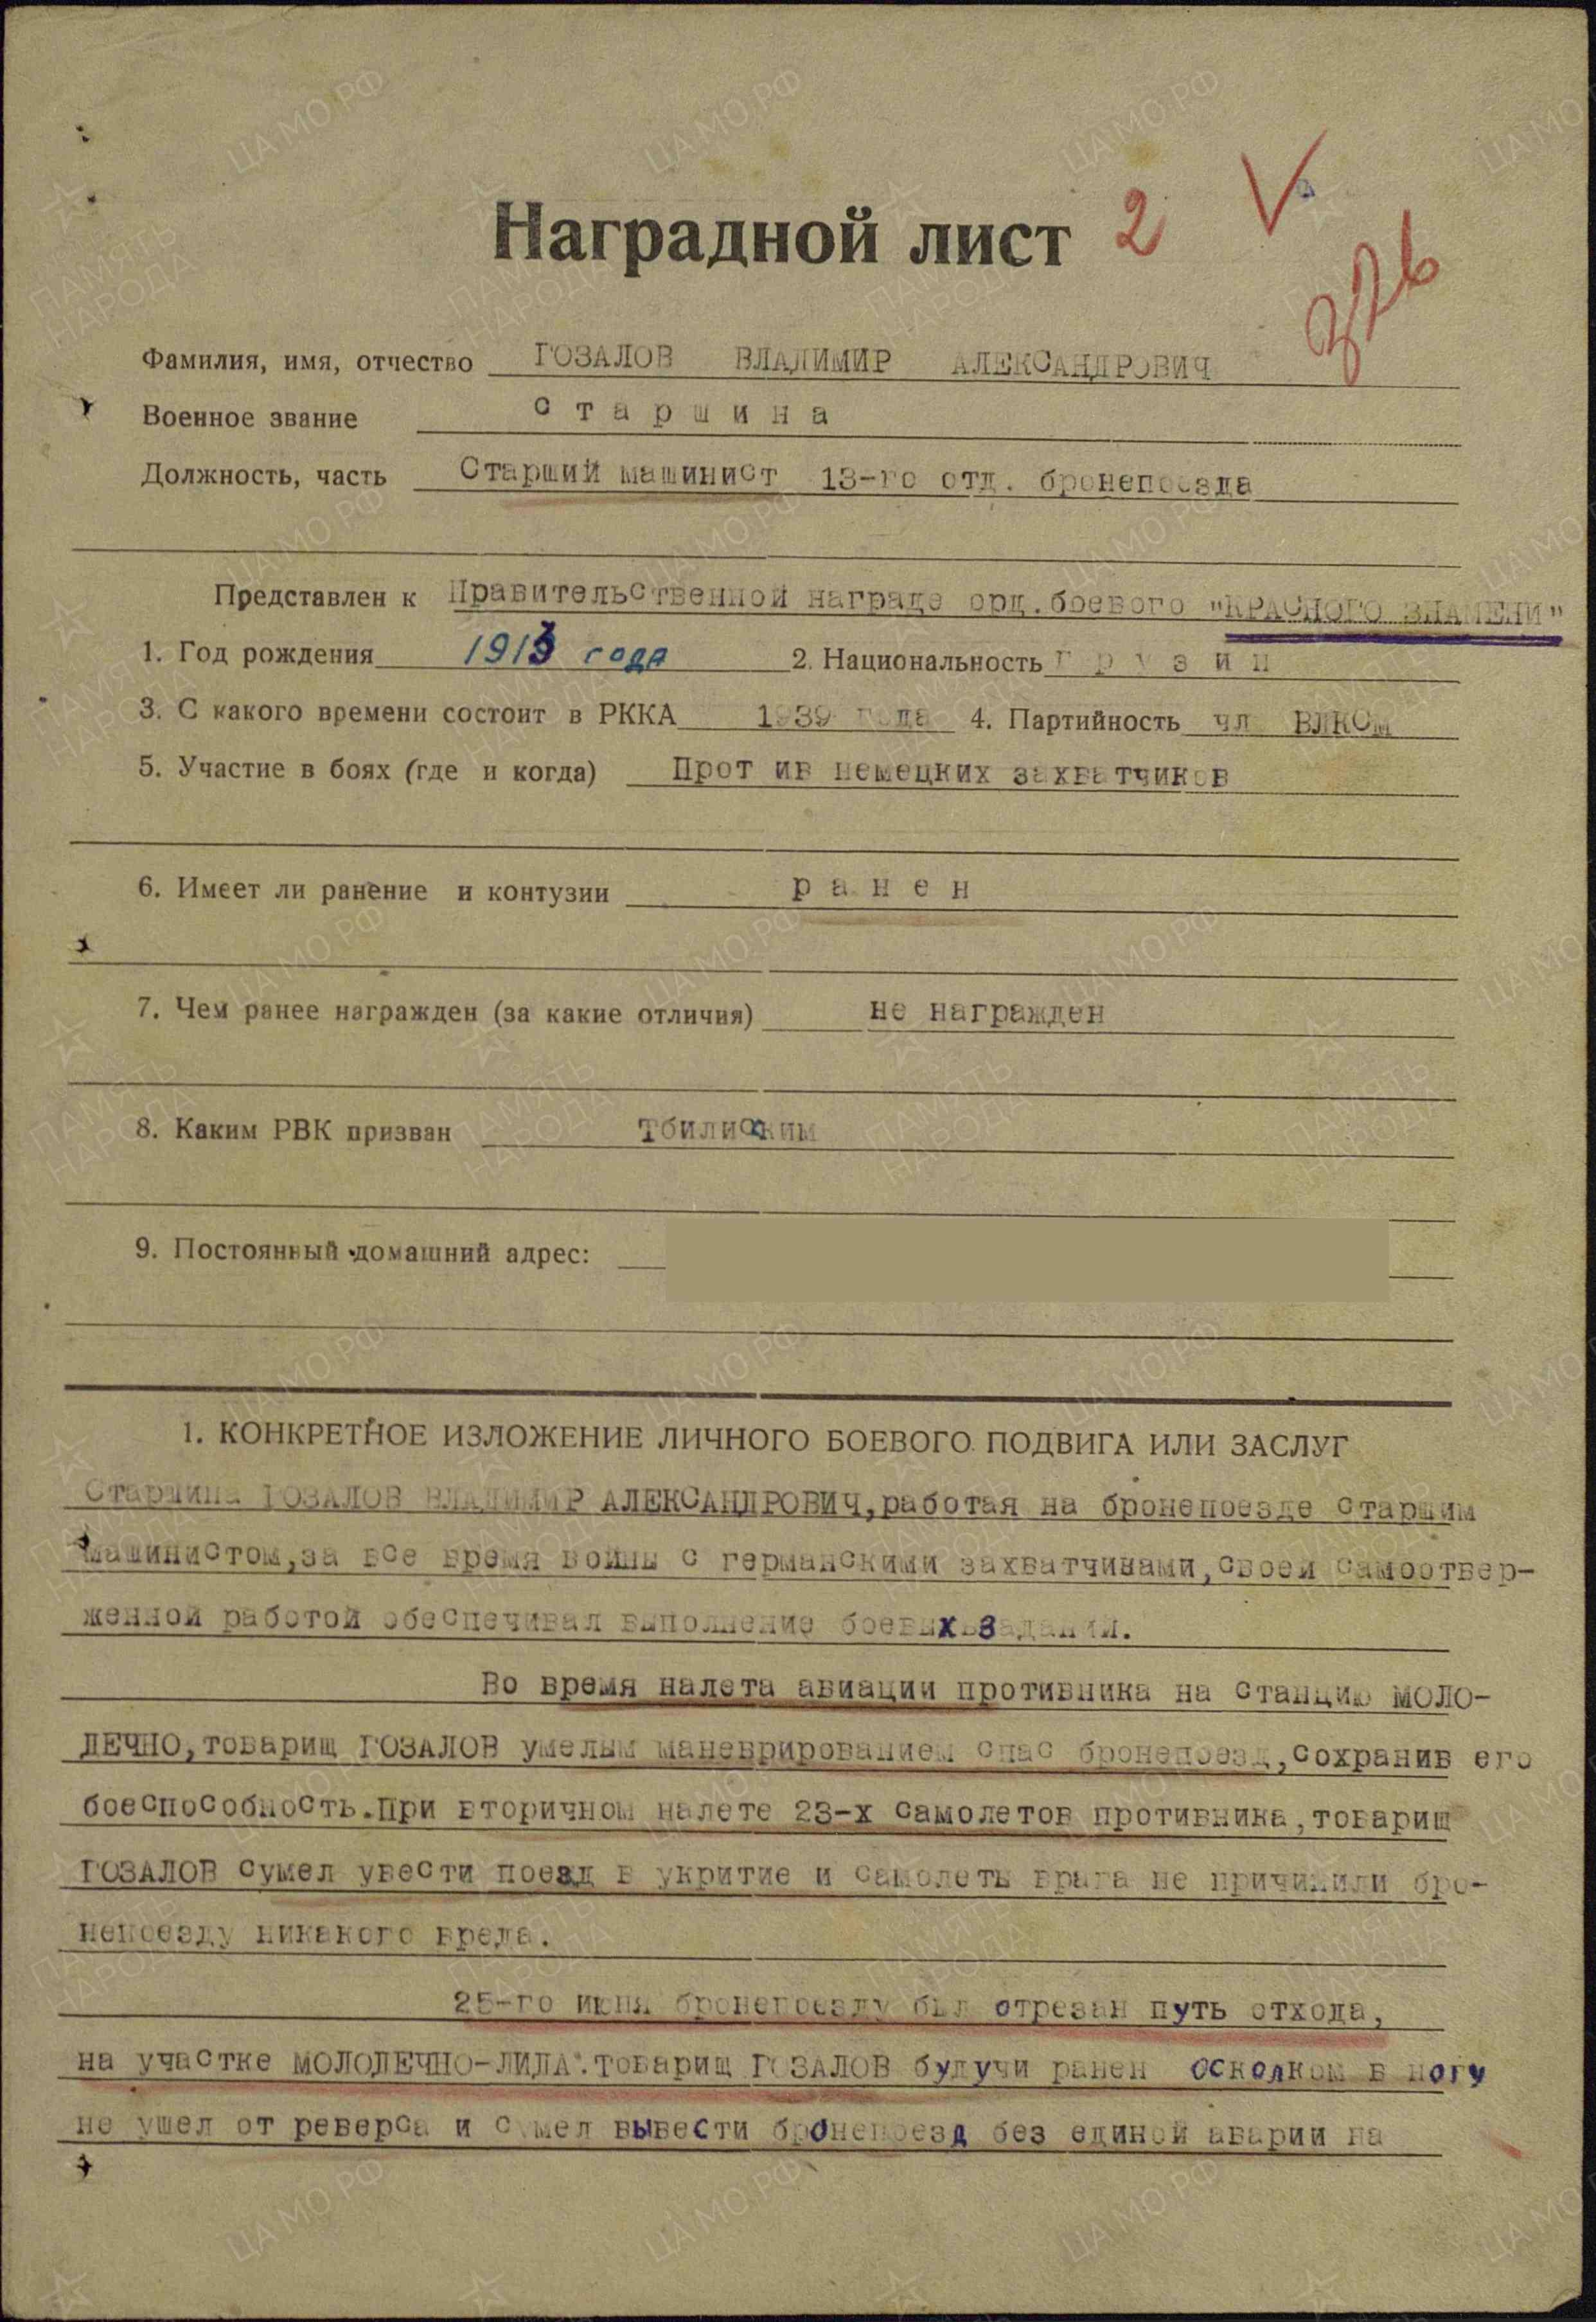 Наградной лист 2 V
376
Фамилия, имя, отчество ГОЗАЛОВ ВЛАДИМИР АЛЕКСАНДРОВИЧ
Военное звание старшина
Должность, часть Старший машинист 13-го отд. бронепоезда
Представлен к Правительственной награде орд. боевого "КРАСНОГО ЗНАМЕНИ"
1. Год рождения 1913 года 2. Национальность грузин
3. С какого времени состоит в РККА 1939 года 4. Партийность чл ВЛКСМ
5. Участие в боях (где и когда) Прот ив немецких захватчиков
6. Имеет ли ранение и контузии ранен
7. Чем ранее награжден (за какие отличия) не награжден
8. Каким РВК призван Тбилиским
9. Постоянный домашний адрес:
1. КОНКРЕТНОЕ ИЗЛОЖЕНИЕ ЛИЧНОГО БОЕВОГО ПОДВИГА ИЛИ ЗАСЛУГ
Старшина ГОЗАЛОВ ВЛАДИМИР АЛЕКСАНДРОВИЧ, работая на бронепоезде старшим
машинистом, за все время войны с германскими захватчиками, своей самоотвер-
женной работой обеспечивал выполнение боевых заданий.
Во время налета авиации противника на станцию МОЛО-
ДЕЧНО, товарищ ГОЗАЛОВ умелым маневрированием спас бронепоезд, сохранив его
боеспособность. При вторичном налете 23-х самолетов противника, товарищ
ГОЗАЛОВ сумел увести поезд в укритие и самолеты врага не причинили бро-
непоезду никакого вреда.
25-го июня бронепоезду был отрезан путь отхода,
на участке МОЛОДЕЧНО-ЛИДА. Товарищ ГОЗАЛОВ будучи ранен осколком в ногу
не ушел от реверса и сумел вывести бронепоезд без единой аварии на
ЦА МО РФ
ПАМЯТЬ НАРОДА